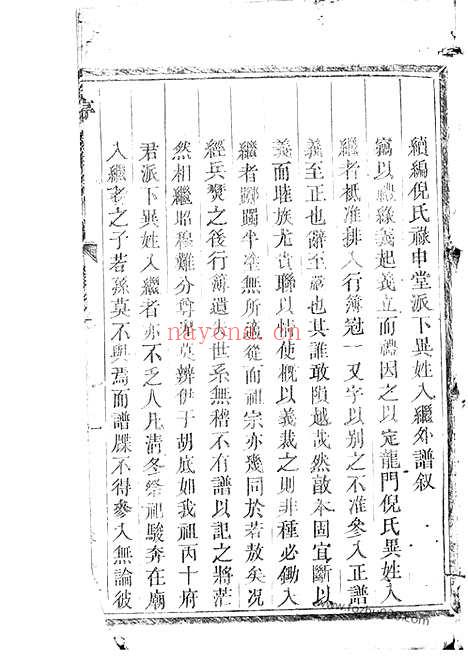 續編倪氏祿申堂派下異姓入繼外譜叙
竊以禮緣義起義立而禮因之以定龍門倪氏異姓入
繼者祇准排入行簿冠一又字以別之不准參入正譜
義至正也辭至嚴也其誰敢隕越哉然敵本固宜斷以
義而睦族尤貴聯以情使概以義裁之則非種必鋤入
繼者躑躅半塗無所適從而祖宗亦幾同於若敖矣况
經兵燹之後行簿遺亡世系無稽不有譜以記之將茫
然相繼昭穆難分尊卑莫辨伊于胡底如我祖丙十府
君派下異姓入繼者亦不乏人凡淸冬祭祖駿奔在廟
入繼者之子若孫莫不與焉而譜牒不得參入無論彼
nayona.cn